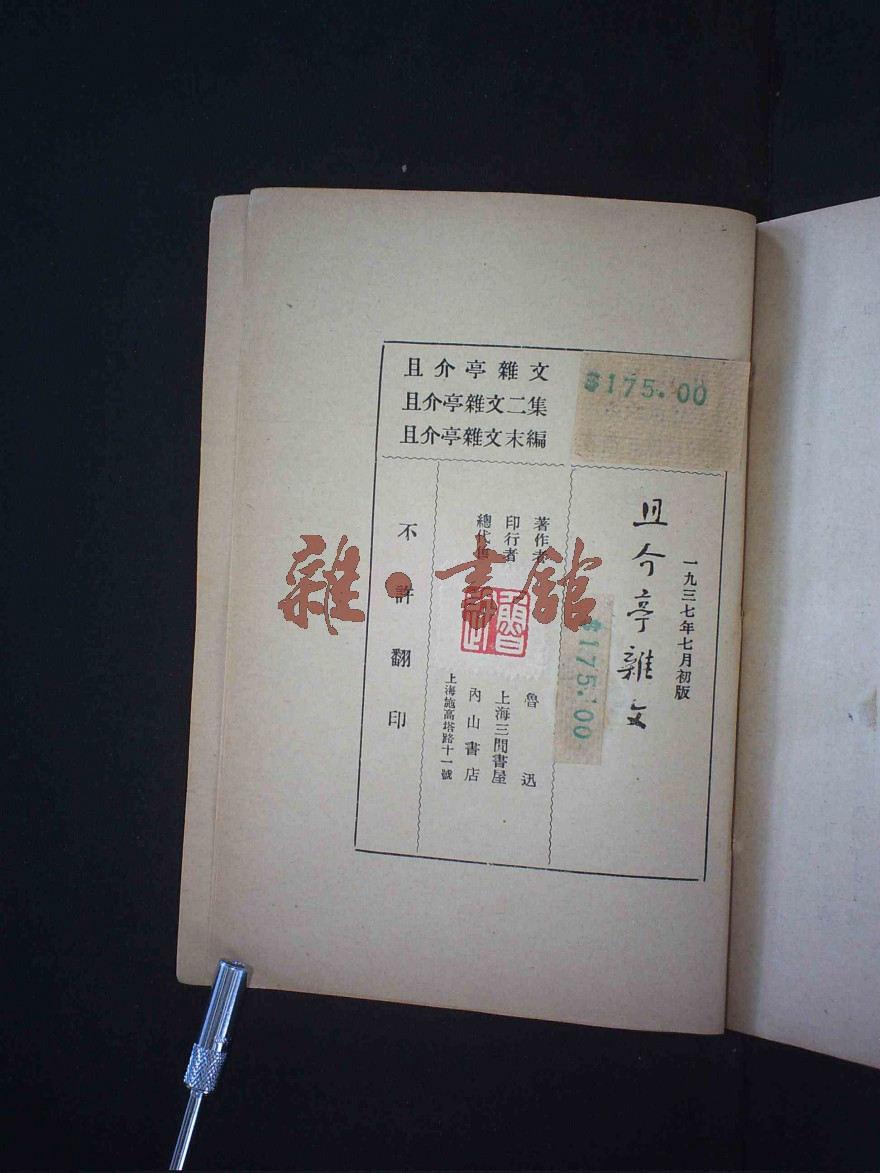 且介亭雜文
且介亭雜文二集
且介亭雜文末編
$175.00
一九三七年七月初版
且介亭雜文
$175.00
著作者 魯迅
印行者 上海三閒書屋
總代售 內山書店
上海施高塔路十一號
不許翻印
雜·書館